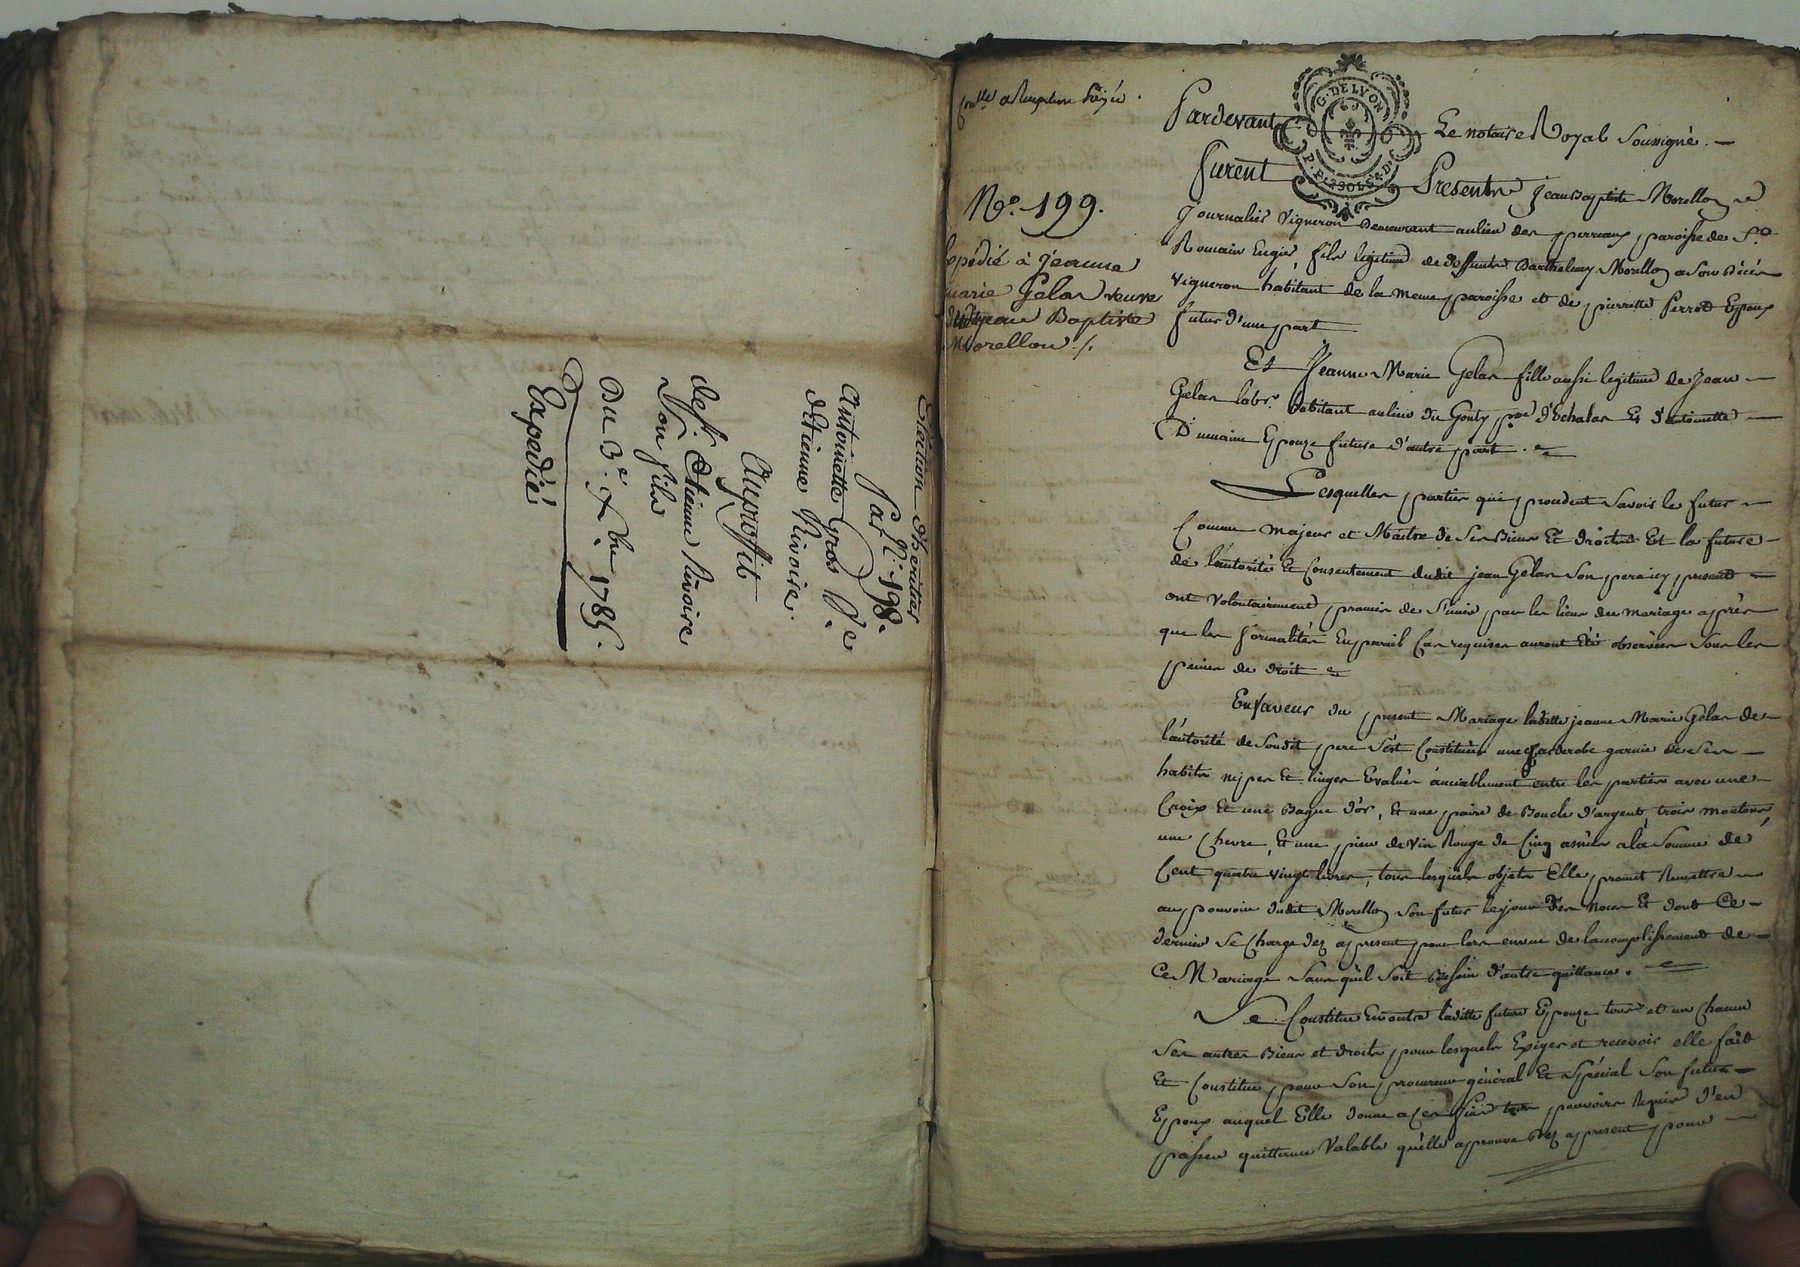 Élection d'héritier
par N.° 198.
Antoinette Gros V.e
d'Etienne Rivoire.
Auproffit
de s.r Etienne Rivoire
Son fils
Du 3.e Xbre 1785.
Expedié
N.° 199.
Expédié à Jeanne
marie Gelas veuve
dud. Jean Baptiste
Morellon /.
G. DE LYON
Pardevant Le notaire Royal Soussigné. —
furent Presents Jean Baptiste Morellon
Journalier Vigneron Demeurant au lieu des perreaux paroisse de S.t
Romain Engier fils legitime de deffunt Barthelemy Morellon a son décès
Vigneron habitant de la meme paroisse et de pierrette Perrot Epoux
futur d'une part
Et Jeanne Marie Gelas fille aussi legitime de Jean —
Gelas labr. habitant au lieu du Gouty psse d'Echalas Et d'antoinette —
Dumaine Epouze future d'autre part.
Lesquelles parties qui prendent Savoir le futur —
Comme majeur et Maitre de Ses Biens Et droits Et la future —
de l'autorité Et Consentement dudit jean Gelas Son pere icy present —
ont Volontairement promis de S'unir par les liens du mariage après
que les formalités En pareil Cas requises auront été observées Sous les
peines de droit
En faveur du present Mariage laditte jeanne Marie Gelas de —
l'autorité de Sondit pere S'est Constituée une garderobe garnie de Ses —
habits nipes Et linges Evalués amiablement entre les parties avec une —
Croix Et une Bague d'or, Et une paire de Boucle d'argent, trois moutons,
une Chevre, Et une piece de Vin Rouge de Cinq asnées a la Somme de
Cent quatre vingt livres, tous lesquels objets Elle promet Remettre —
au pouvoir dudit Morellon Son futur le jour des Noces Et dont Ce —
dernier Se Charge dez apresent pour lors en vue de lacomplissement de —
Ce Mariage Sans qu'il Soit Besoin d'autre quittance. —
Se Constitue En outre laditte future Epouze tous et un Chacun
Ses autres Biens et droits pour lesquels Exiger et recevoir elle fait
Et Constitue pour Son procureur général Et Spécial Son futur —
Epoux auquel Elle donne a Ces fins tous pouvoirs Requis d'en
passer quittance Valable qu'elle approuve dez apresent pour —